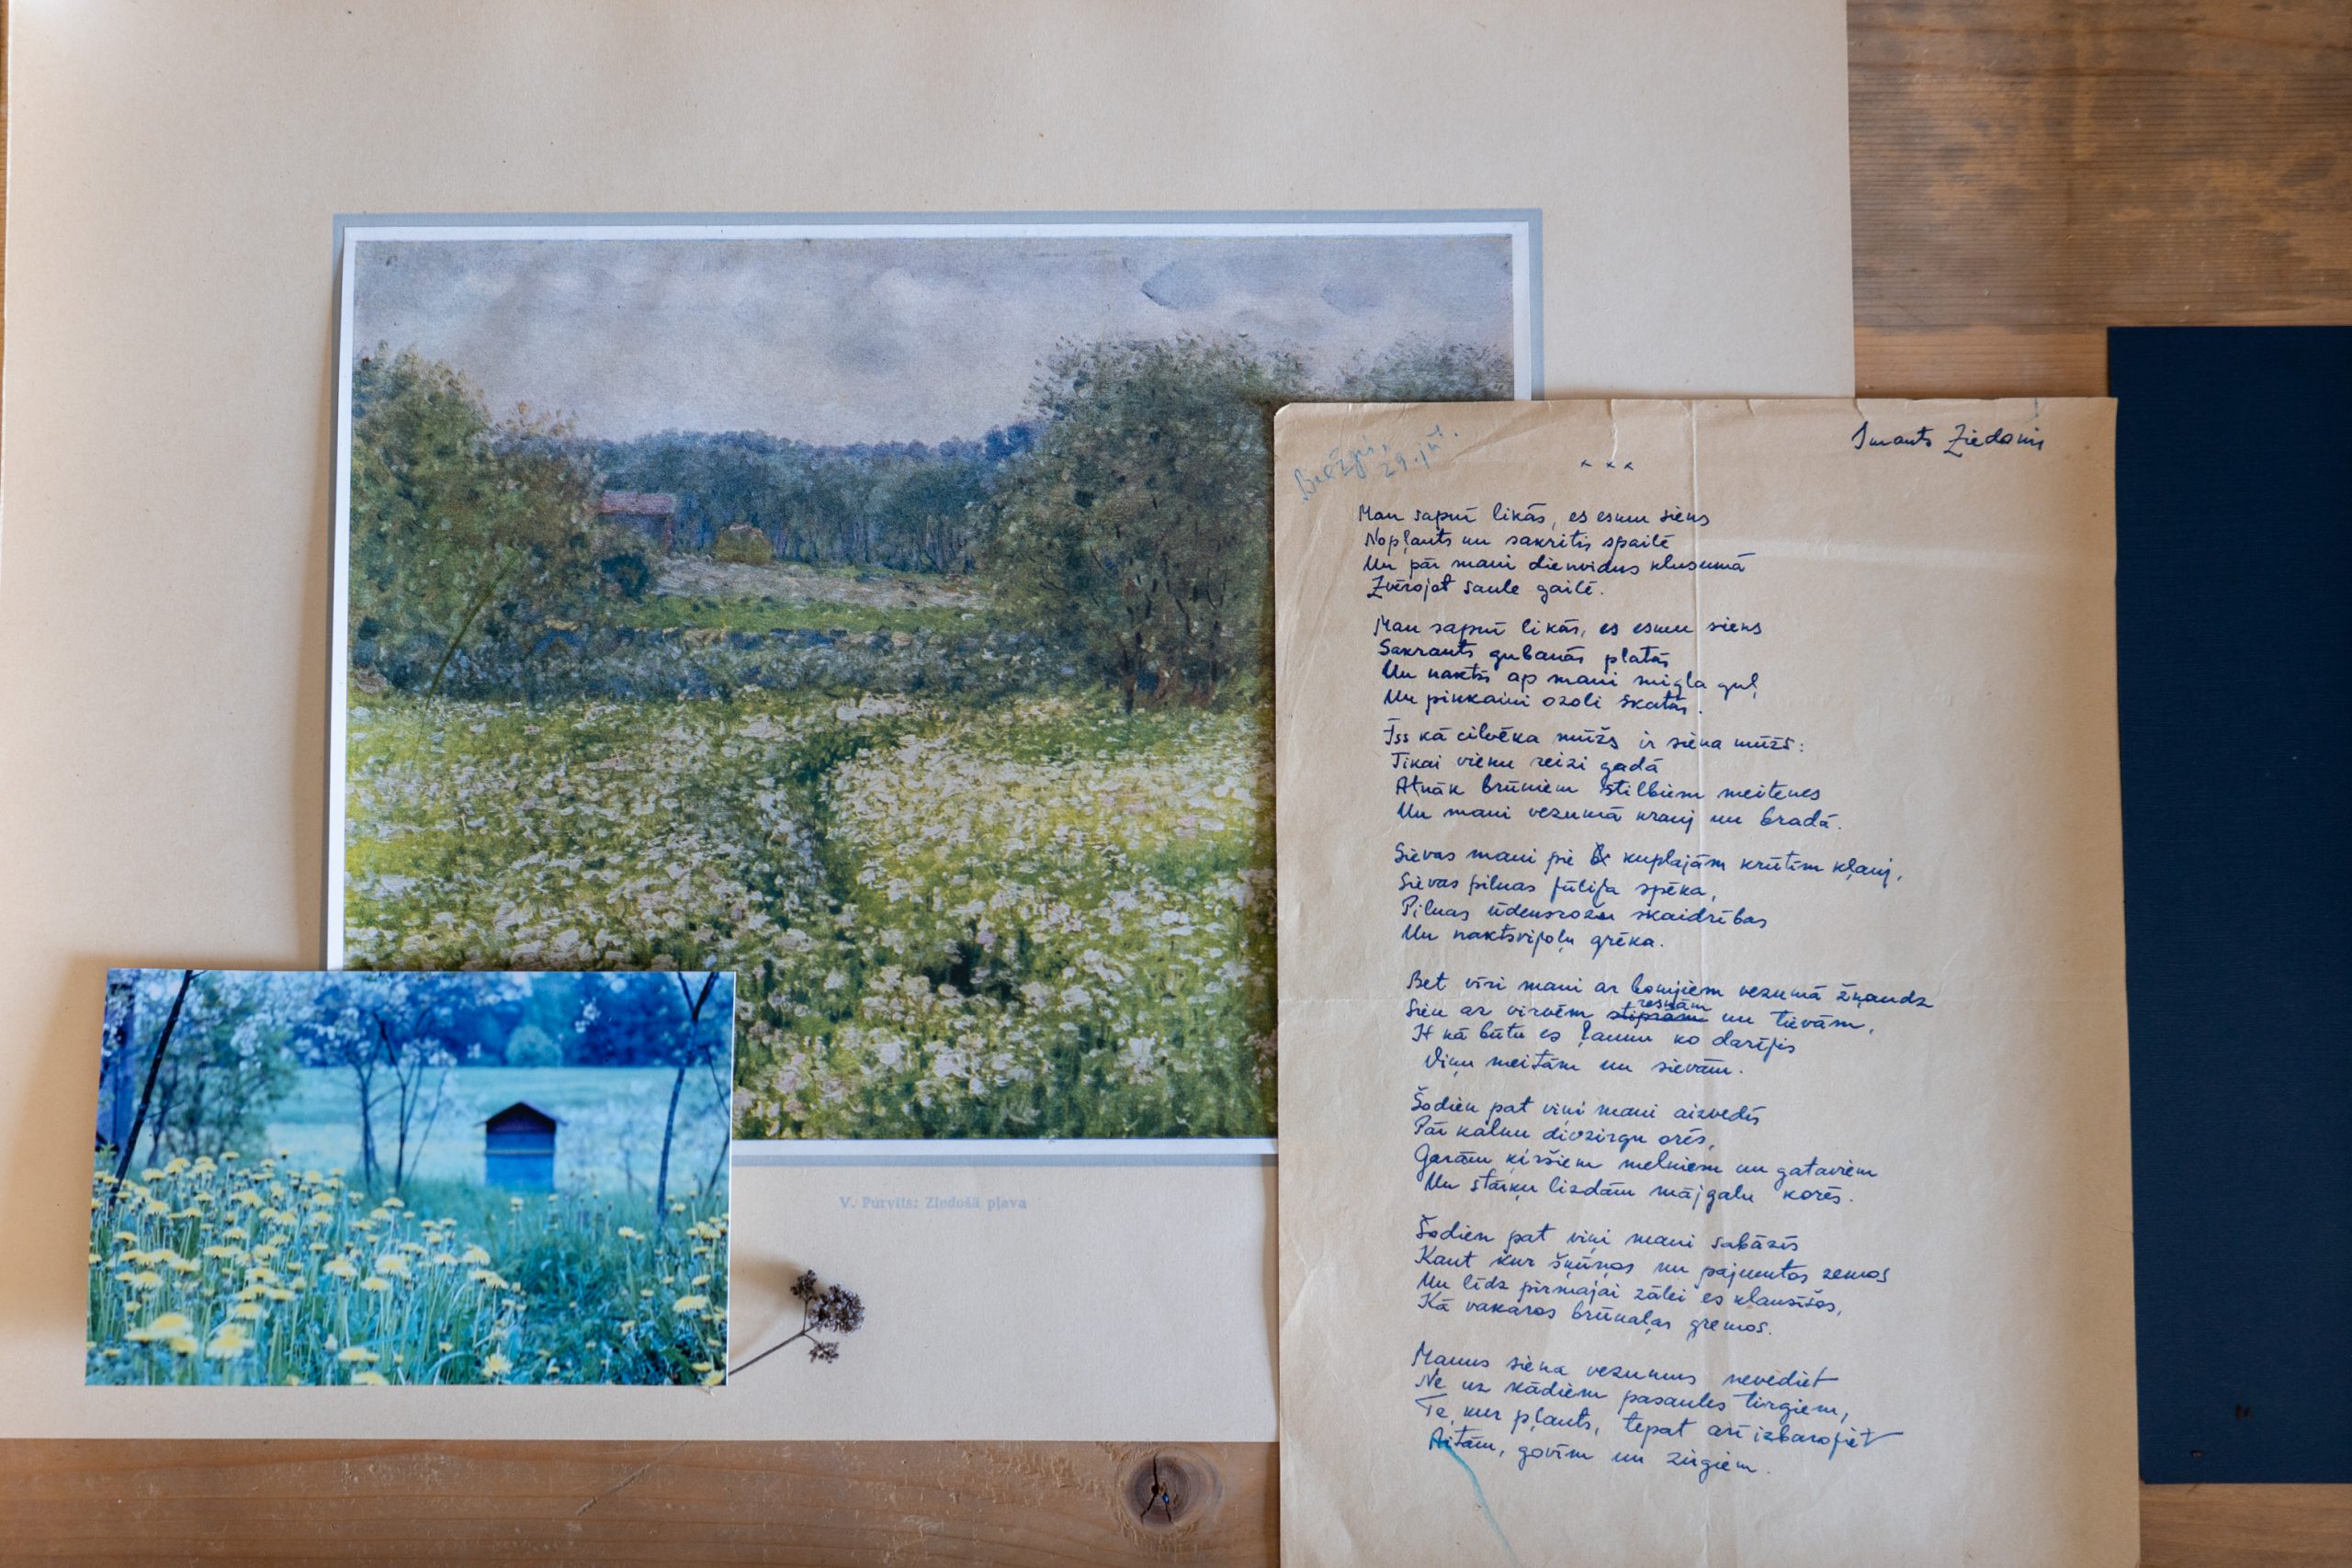 Imants Ziedonis
29. jūl.
× × ×
Man sapnī likās, es esmu siens
Nopļauts un sakritis spailē
Un pār mani dienvidus klusumā
Zvērojot saule gailē.
Man sapnī likās, es esmu siens
Sakrauts gubanās platās
Un naktīs ap mani migla guļ
Un pinkaini ozoli skatās.
Īss kā cilvēka mūžs ir siena mūžs:
Tikai vienu reizi gadā
Atnāk brūniem stilbiem meitenes
Un mani vezumā krauj un bradā.
Sievas mani pie kuplajām krūtīm kļauj,
Sievas pilnas jūlija spēka,
Pilnas ūdensrožu skaidrības
Un naktsvijoļu grēka.
Bet vīri mani ar bomjiem vezumā žņaudz
Sien ar virvēm stiprām resnām un tievām,
It kā būtu es ļaunu ko darījis
Viņu meitām un sievām.
Šodien pat viņi mani aizvedīs
Pār kalnu divzirgu orēs,
Garām ķiršiem melniem un gataviem
Un stārķu lizdām mājgalu korēs.
Šodien pat viņi mani sabāzīs
Kaut kur šķūņos un pajumtos zemos
Un līdz pirmajai zālei es klausīšos,
Kā vakaros brūnaļas gremos.
Manus siena vezumus nevediet
Ne uz kādiem pasaules tirgiem,
Te, kur pļauts, tepat arī izbarojiet
Aitām, govīm un zirgiem.
V. Purvīts: Ziedošā pļava